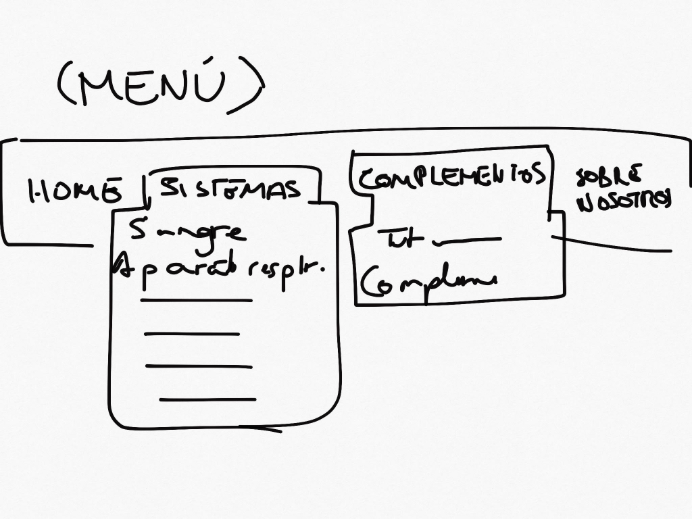 (MENÚ)
HOME
SISTEMAS
Sangre
Aparato respir.
COMPLEMENTOS
Tut
Complem
SOBRE
NOSOTROS